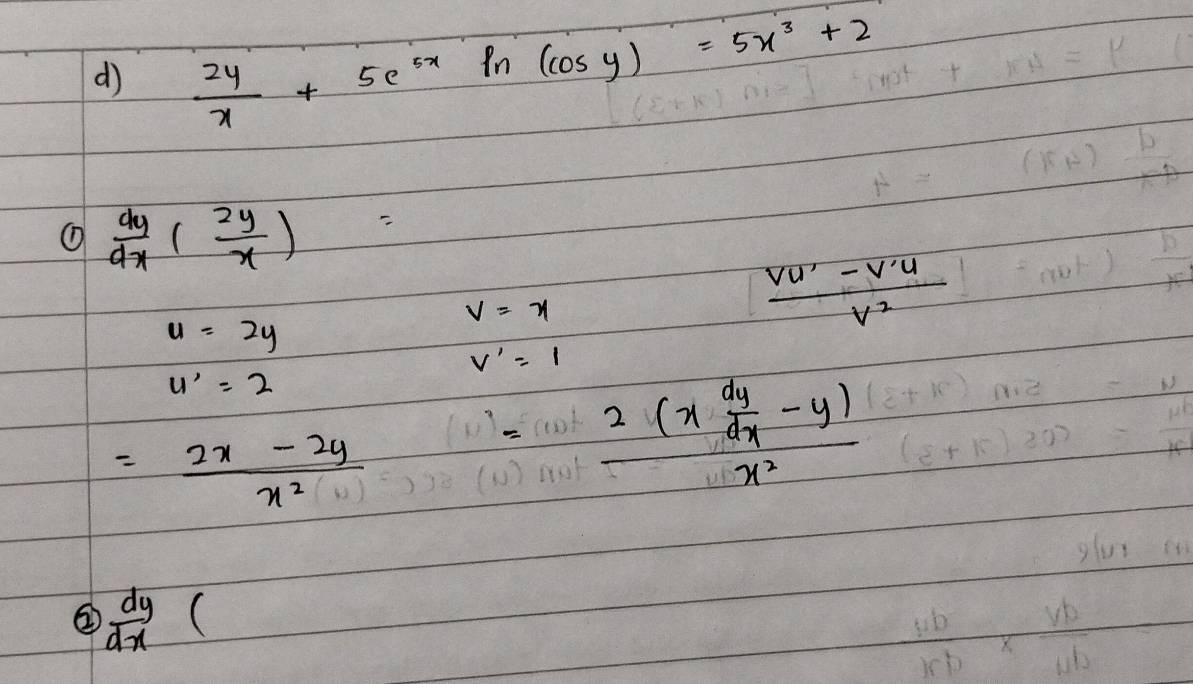 d) 2y/x + 5e^5x ln (cos y) = 5x³ + 2
① dy/dx ( 2y/x ) =
u = 2y v = x vu' - v'u / v²
u' = 2 v' = 1
= 2x - 2y / x² = 2 (x dy/dx - y) / x²
② dy/dx (